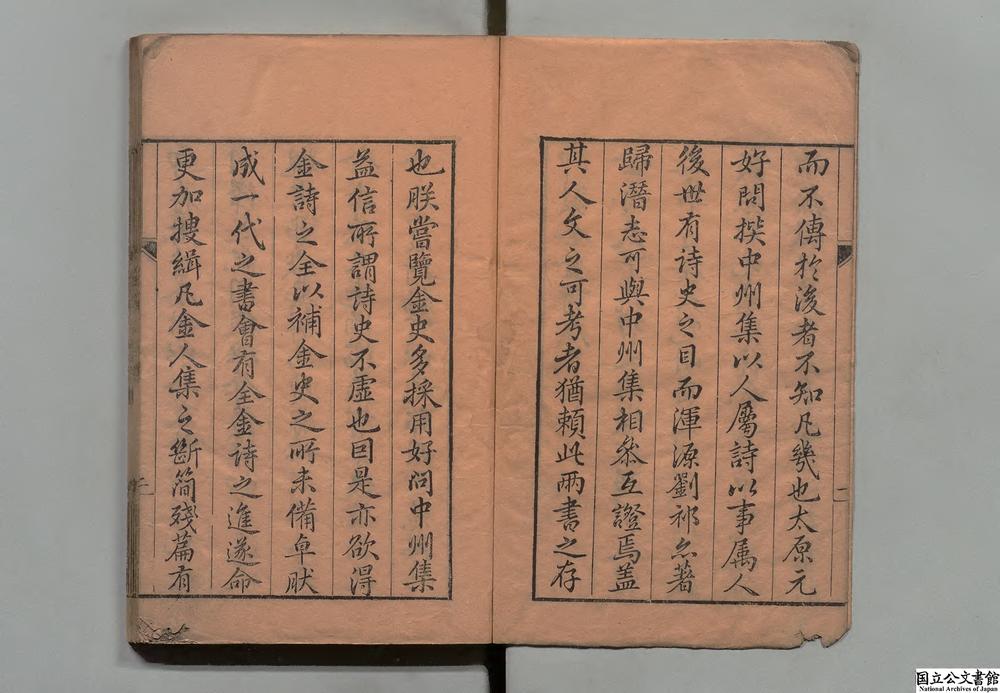 而不傳於後者不知凡幾也太原元
好問撰中州集以人屬詩以事属人
後世有诗史之目而渾源劉祁亦著
歸潛志可與中州集相叅互證焉盖
其人文之可考者猶賴此兩書之存
也朕嘗覽金史多採用好问中州集
益信所謂詩史不虚也因是亦欲得
金詩之全以補金史之所未備卓肰
成一代之書會有全金詩之進遂命
更加搜緝凡金人集之斷簡殘篇有
国立公文書館
National Archives of Japan